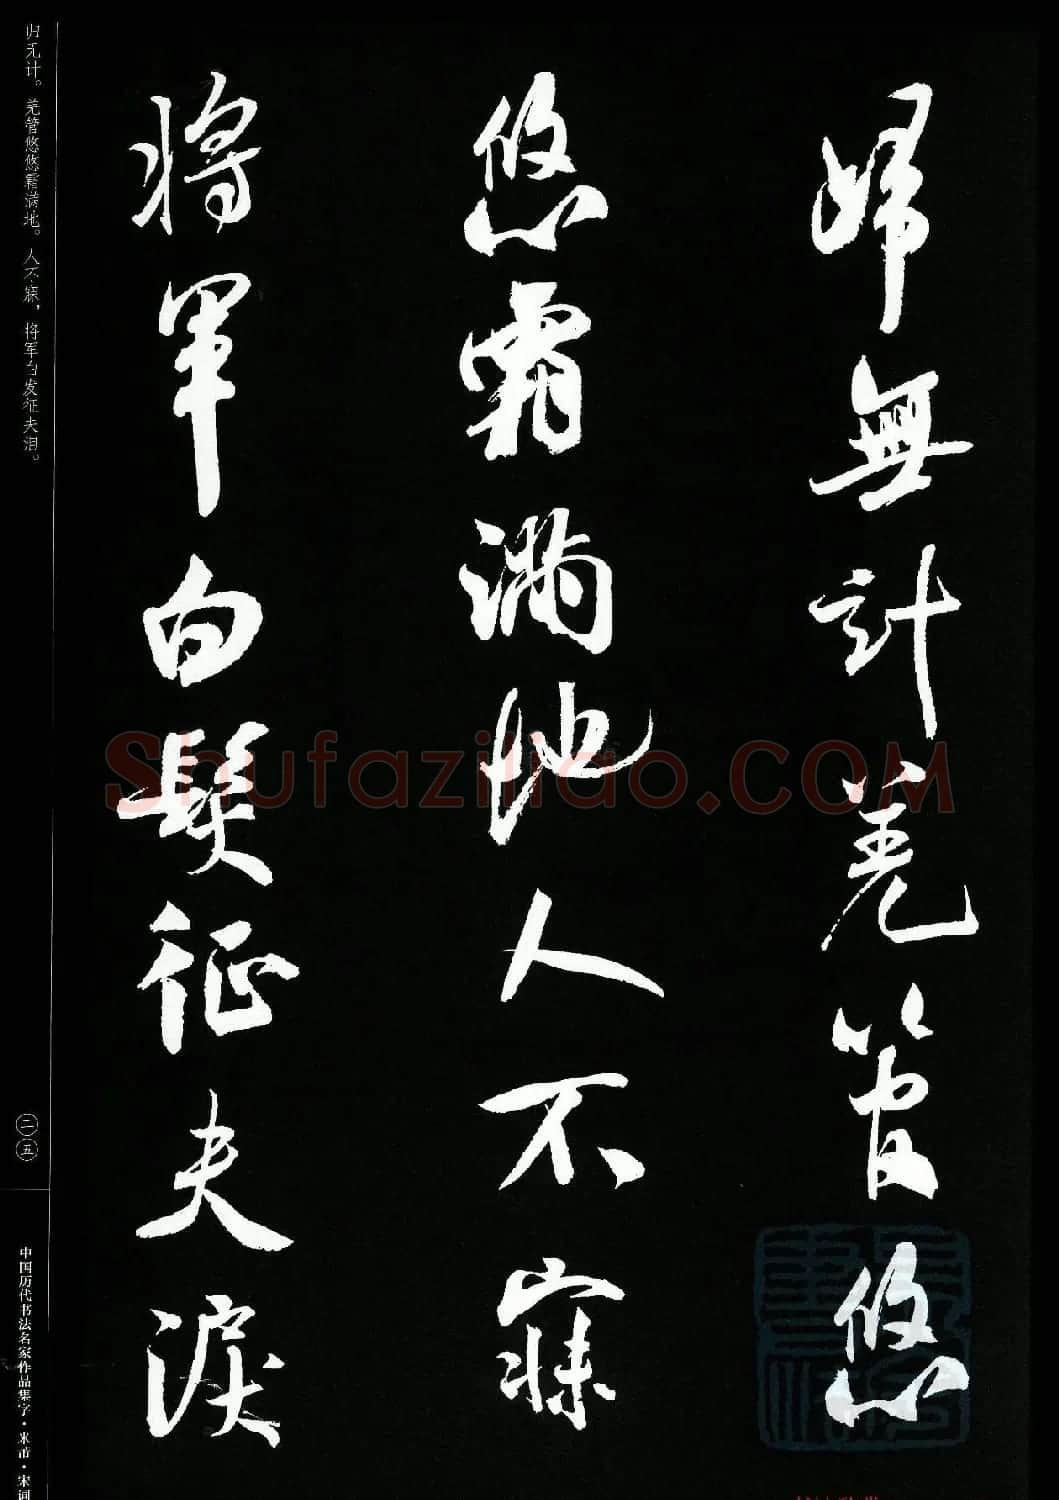 歸無計羌管悠
悠霜滿地人不寐
將軍白髮征夫淚
归无计。羌管悠悠霜满地。人不寐，将军白发征夫泪。
二五
中国历代书法名家作品集字·米芾·宋词
Shufaziliao.COM